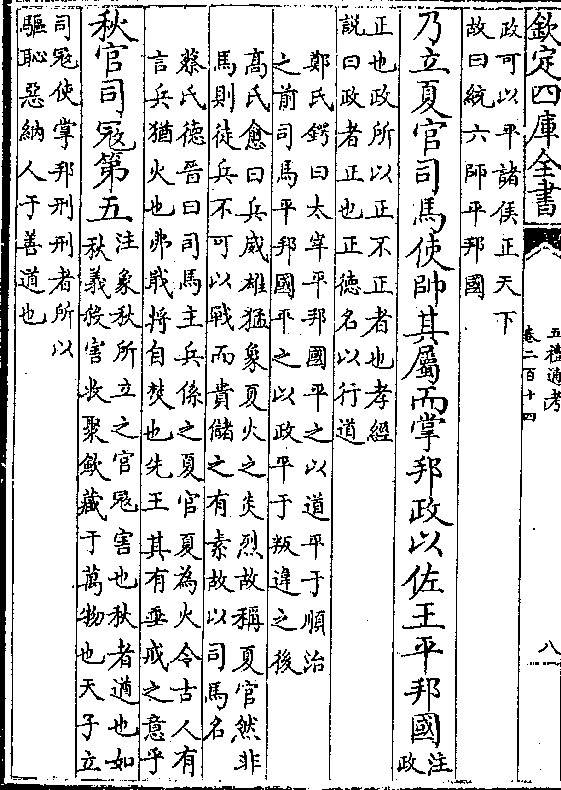 欽定四庫全書
五禮通考
卷二百十四
八
政可以平諸侯正天下
故曰統六師平邦國
乃立夏官司馬使帥其屬而掌邦政以佐王平邦國
注
政
正也政所以正不正者也孝經
說曰政者正也正德名以行道
鄭氏鍔曰太宰平邦國平之以道平于順治
之前司馬平邦國平之以政平于叛違之後
髙氏愈曰兵威雄猛象夏火之炎烈故稱夏官然非
馬則徒兵不可以戰而貴儲之有素故以司馬名
蔡氏德晉曰司馬主兵係之夏官夏為火令古人有
言兵猶火也弗戢將自焚也先王其有垂戒之意乎
秋官司冦第五
注象秋所立之官冦害也秋者遒也如
秋義殺害收聚歛藏于萬物也天子立
司冦使掌邦刑刑者所以
驅恥惡納人于善道也